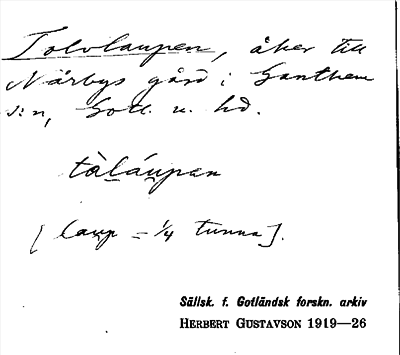 Tolvlaupen, åker till
Närbys gård i Ganthem
s:n, Gotl. n. hd.
tàláupen
[laup = 1/4 tunna].
Sällsk. f. Gotländsk forskn. arkiv
HERBERT GUSTAVSON 1919—26